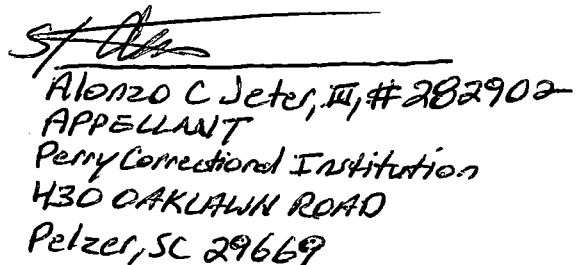 S/
Alonzo C Jeter, III, #282902
APPELLANT
Perry Correctional Institution
430 OAKLAWN ROAD
Pelzer, SC 29669